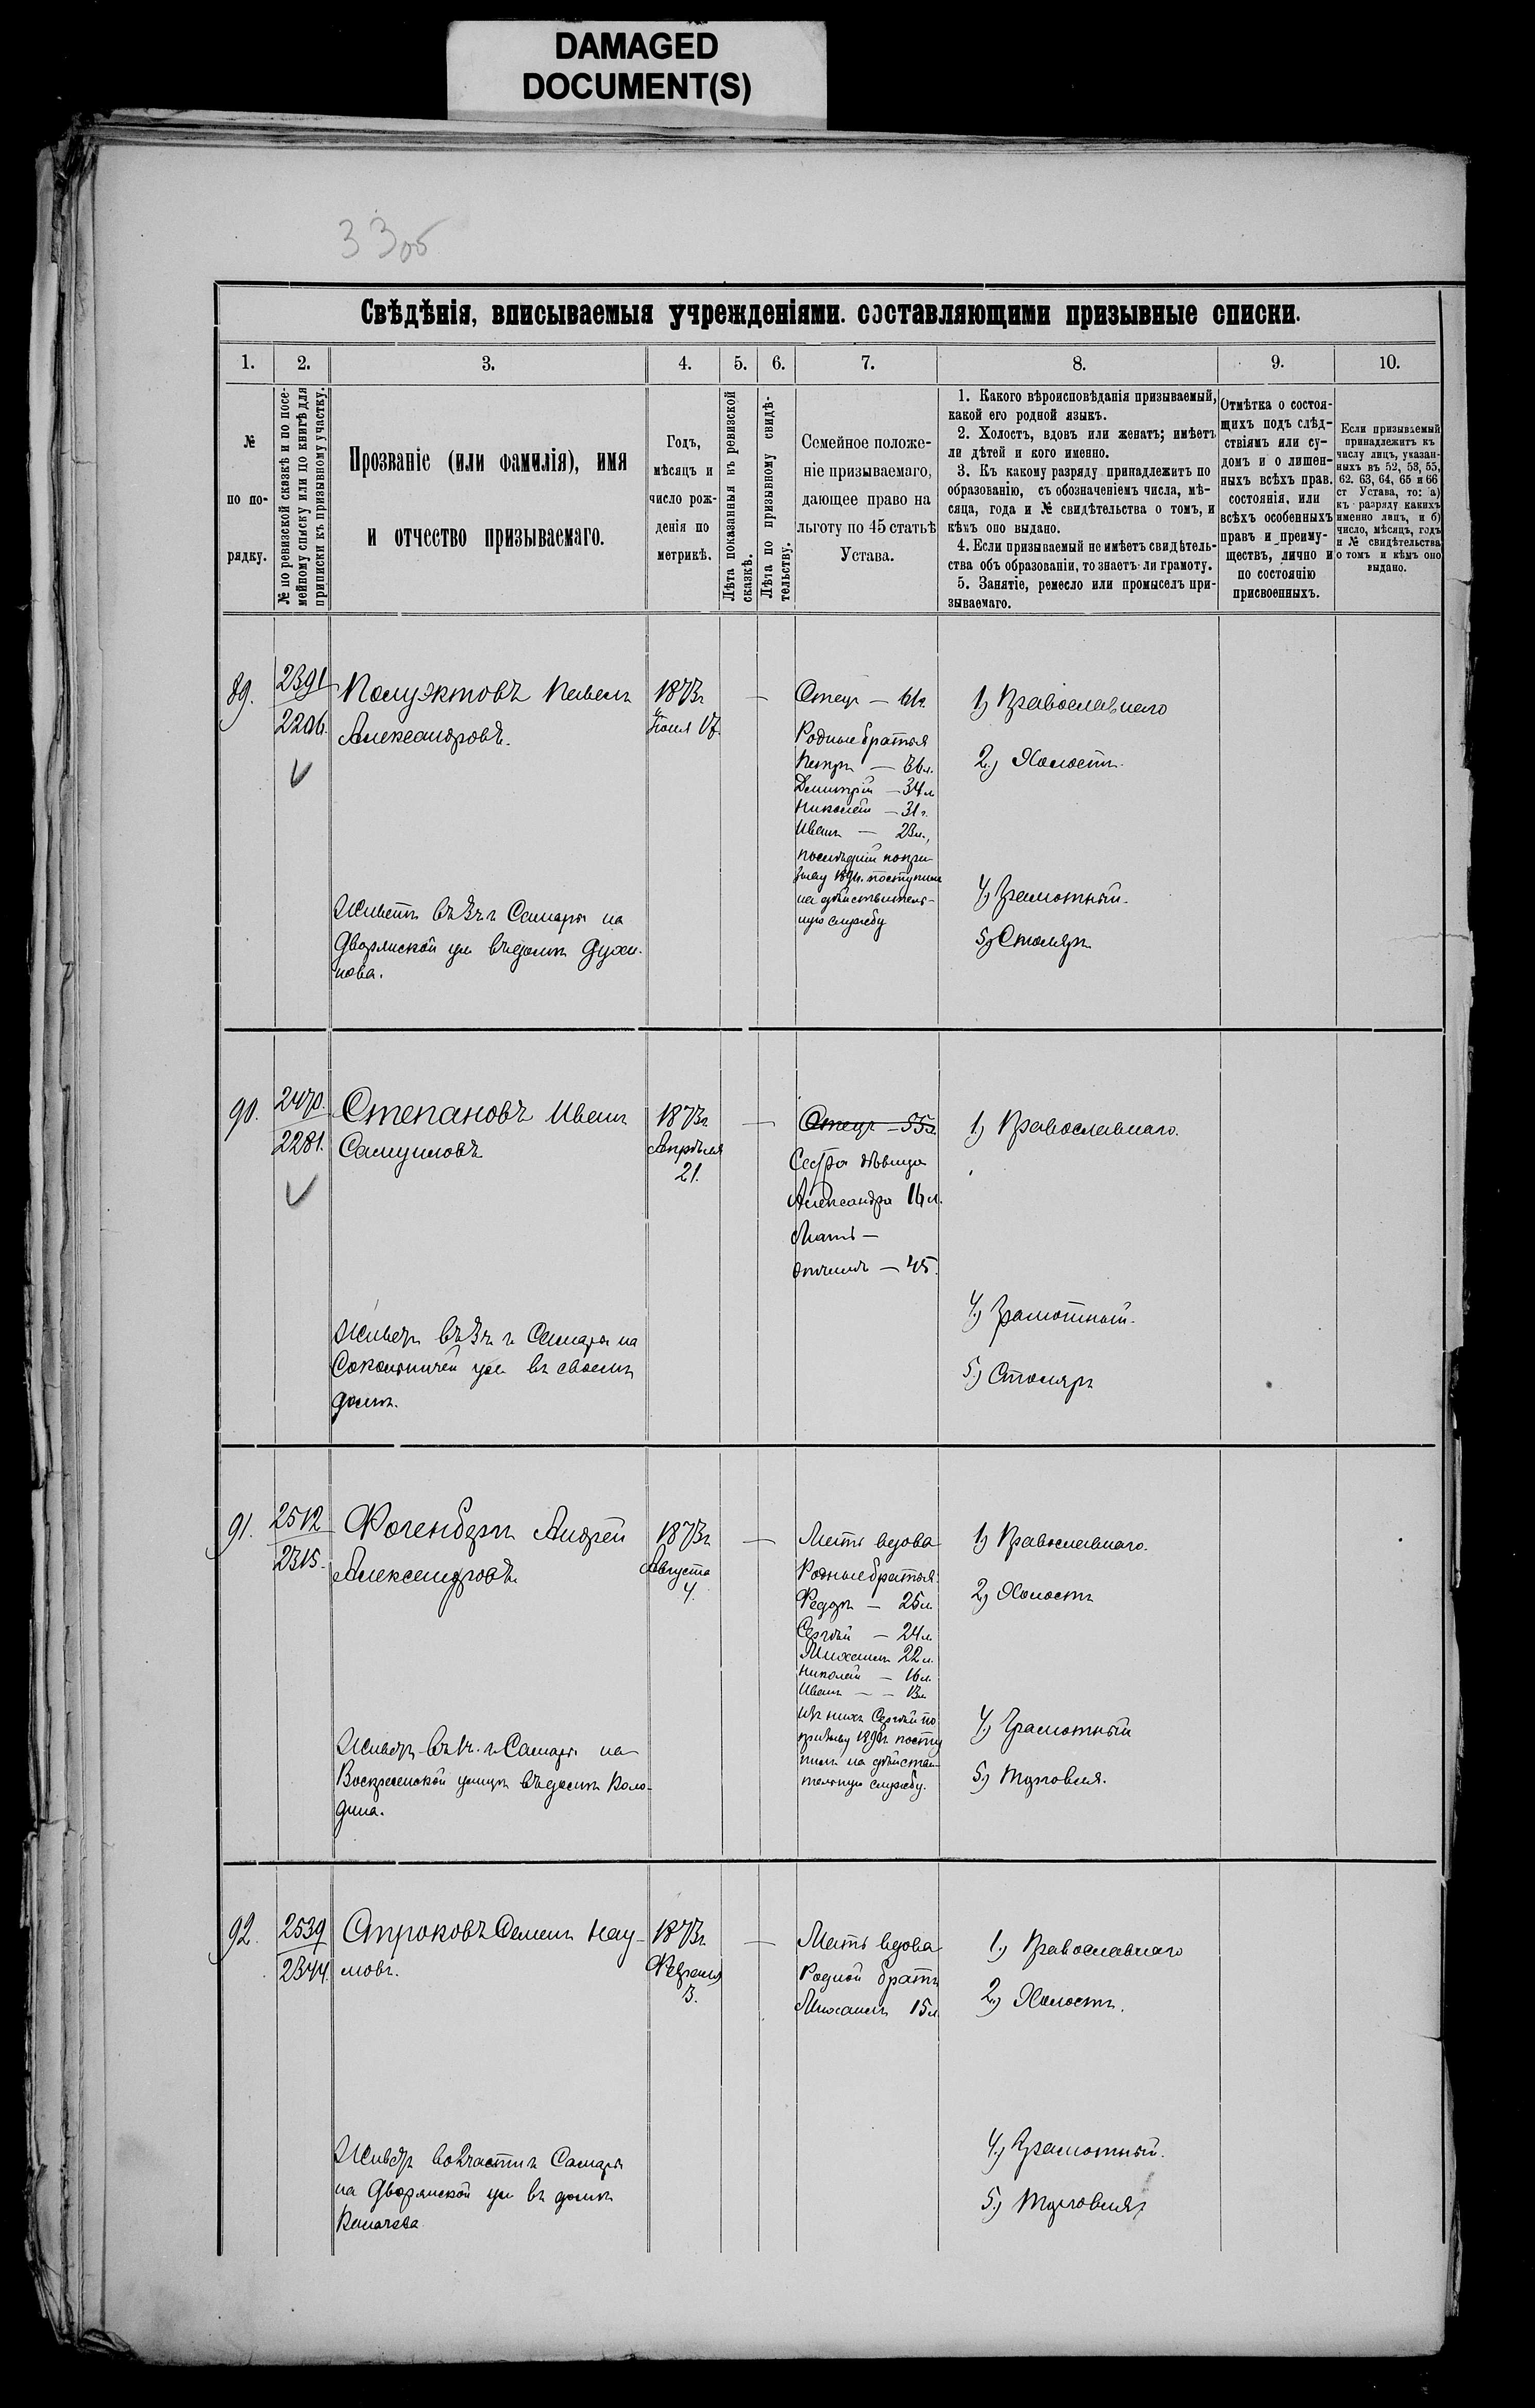 DAMAGED
DOCUMENT(S)
33об
Свѣдѣнія, вписываемыя учрежденіями. составляющими призывные списки.
1. 2. 3. 4. 5. 6. 7. 8. 9. 10.
№
по по-
рядку.
№ по ревизской сказкѣ и по посе-
мейному списку или по книгѣ для
приписки къ призывному участку.
Прозваніе (или фамилія), имя
и отчество призываемаго.
Годъ,
мѣсяцъ и
число рож-
денія по
метрикѣ.
Лѣта показанныя въ ревизской
сказкѣ.
Лѣта по призывному свидѣ-
тельству.
Семейное положе-
ніе призываемаго,
дающее право на
льготу по 45 статьѣ
Устава.
1. Какого вѣроисповѣданія призываемый,
какой его родной языкъ.
2. Холостъ, вдовъ или женатъ; имѣетъ
ли дѣтей и кого именно.
3. Къ какому разряду принадлежитъ по
образованію, съ обозначеніемъ числа, мѣ-
сяца, года и № свидѣтельства о томъ, и
кѣмъ оно выдано.
4. Если призываемый не имѣетъ свидѣтель-
ства объ образованіи, то знаетъ ли грамоту.
5. Занятіе, ремесло или промыселъ при-
зываемаго.
Отмѣтка о состоя-
щихъ подъ слѣд-
ствіямъ или су-
домъ и о лишен-
ныхъ всѣхъ прав.
состоянія, или
всѣхъ особенныхъ
правъ и преиму-
ществъ, лично и
по состоянію
присвоенныхъ.
Если призываемый
принадлежитъ къ
числу лицъ, указан-
ныхъ въ 52, 53, 55,
62. 63, 64, 65 и 66
ст Устава, то: а)
къ разряду какихъ
именно лицъ, и б)
число, мѣсяцъ, годъ
и № свидѣтельства
о томъ и кѣмъ оно
выдано.
89.
2391
2206.
Полуэктовъ Павелъ
Александровъ.
1873г
Іюня 17.
—
Отецъ — 61г.
Родные братья
Петръ — 36л.
Димитрій — 34л
Николай — 31г.
Иванъ — 23л.,
последній по при-
зыву 189 г. поступилъ
на дѣйствитель-
ную службу
1) Православнаго
2.) Холостъ.
4) Грамотный.
5) Столяръ
Живетъ въ 3 ч г Самары на
Дворянской ул въ домѣ Духи-
нова.
90.
2470.
2281.
Степановъ Иванъ
Самуиловъ
1873г
Апрѣля
21.
—
Отецъ — 55л.
Сестра дѣвица
Александра 16 л.
Мать —
— 45.
1) Православнаго.
4.) Грамотный.
5.) Столяръ
Живетъ въ 3 ч г Самары на
ул въ своемъ
домѣ.
91.
2512
2315.
Фогенберъ Андрей
Александровъ
1873г
Августа
4.
—
Мать вдова
Родные братья
Федоръ — 25л.
Сергѣй — 24л.
Михаилъ 22л.
Николай — 16л.
Иванъ — — 13л.
Изъ нихъ Сергѣй по
призыву 189 г посту
пилъ на дѣйстви-
тельную службу.
1) Православнаго.
2) Холостъ
4.) Грамотный
5) Торговля.
Живетъ въ 1 ч. г Самары на
Воскресенской улицѣ въ домѣ Коло-
дина.
92.
2539
2344.
Строковъ Семенъ Нау-
мовъ.
1873г
Февраля
3.
—
Мать вдова
Родной братъ
Михаилъ 15л
1.) Православнаго
2.) Холостъ.
4.) Грамотный.
5.) Торговля
Живетъ во 2 части г Самары
на Дворянской ул въ домѣ
Калачева